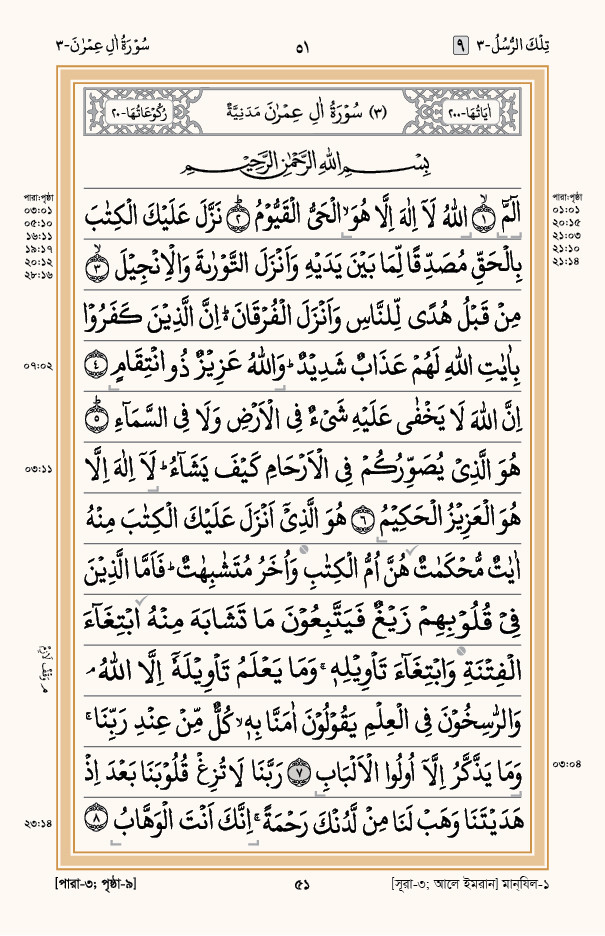 تِلْكَ الرُّسُلُ-٣ ٩ ٥١ سُوْرَةُ اٰلِ عِمْرٰنَ-٣
اٰيَاتُهَا-٢٠٠ (٣) سُوْرَةُ اٰلِ عِمْرٰنَ مَدَنِيَّةٌ رُكُوْعَاتُهَا-٢٠
بِسْمِ اللهِ الرَّحْمٰنِ الرَّحِيْمِ
পারা:পৃষ্ঠা
০১:০১
২০:১৫
২১:০৩
২১:১০
২১:১৪
পারা:পৃষ্ঠা
০৩:০১
০৫:১০
১৬:১১
১৯:১৭
২০:১২
২৮:১৬
الٓمّٓ ۙ﴿١﴾ اللهُ لَآ اِلٰهَ اِلَّا هُوَ ۙ الْحَىُّ الْقَيُّوْمُ ؕ﴿٢﴾ نَزَّلَ عَلَيْكَ الْكِتٰبَ
بِالْحَقِّ مُصَدِّقًا لِّمَا بَيْنَ يَدَيْهِ وَاَنْزَلَ التَّوْرٰىةَ وَالْاِنْجِيْلَ ۙ﴿٣﴾
مِنْ قَبْلُ هُدًى لِّلنَّاسِ وَاَنْزَلَ الْفُرْقَانَ ؕ اِنَّ الَّذِيْنَ كَفَرُوْا
بِاٰيٰتِ اللهِ لَهُمْ عَذَابٌ شَدِيْدٌ ؕ وَاللهُ عَزِيْزٌ ذُو انْتِقَامٍ ﴿٤﴾
০৭:০২
اِنَّ اللهَ لَا يَخْفٰى عَلَيْهِ شَىْءٌ فِى الْاَرْضِ وَلَا فِى السَّمَآءِ ؕ﴿٥﴾
هُوَ الَّذِىْ يُصَوِّرُكُمْ فِى الْاَرْحَامِ كَيْفَ يَشَآءُ ؕ لَآ اِلٰهَ اِلَّا
০৩:১১
هُوَ الْعَزِيْزُ الْحَكِيْمُ ﴿٦﴾ هُوَ الَّذِىْٓ اَنْزَلَ عَلَيْكَ الْكِتٰبَ مِنْهُ
اٰيٰتٌ مُّحْكَمٰتٌ هُنَّ اُمُّ الْكِتٰبِ وَاُخَرُ مُتَشٰبِهٰتٌ ؕ فَاَمَّا الَّذِيْنَ
فِىْ قُلُوْبِهِمْ زَيْغٌ فَيَتَّبِعُوْنَ مَا تَشَابَهَ مِنْهُ ابْتِغَآءَ
الْفِتْنَةِ وَابْتِغَآءَ تَاْوِيْلِهٖ ۚ وَمَا يَعْلَمُ تَاْوِيْلَهٗٓ اِلَّا اللهُ ۘ
م وَقْفْ لَازِمْ
وَالرّٰسِخُوْنَ فِى الْعِلْمِ يَقُوْلُوْنَ اٰمَنَّا بِهٖ ۙ كُلٌّ مِّنْ عِنْدِ رَبِّنَا ۚ
وَمَا يَذَّكَّرُ اِلَّآ اُولُوا الْاَلْبَابِ ﴿٧﴾ رَبَّنَا لَا تُزِغْ قُلُوْبَنَا بَعْدَ اِذْ
০৩:০৪
هَدَيْتَنَا وَهَبْ لَنَا مِنْ لَّدُنْكَ رَحْمَةً ۚ اِنَّكَ اَنْتَ الْوَهَّابُ ﴿٨﴾
২৩:১৪
[পারা-৩; পৃষ্ঠা-৯] ৫১ [সূরা-৩; আলে ইমরান] মান্‌যিল-১